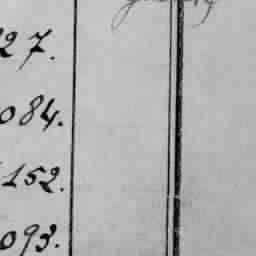 27.
084.
152.
093.